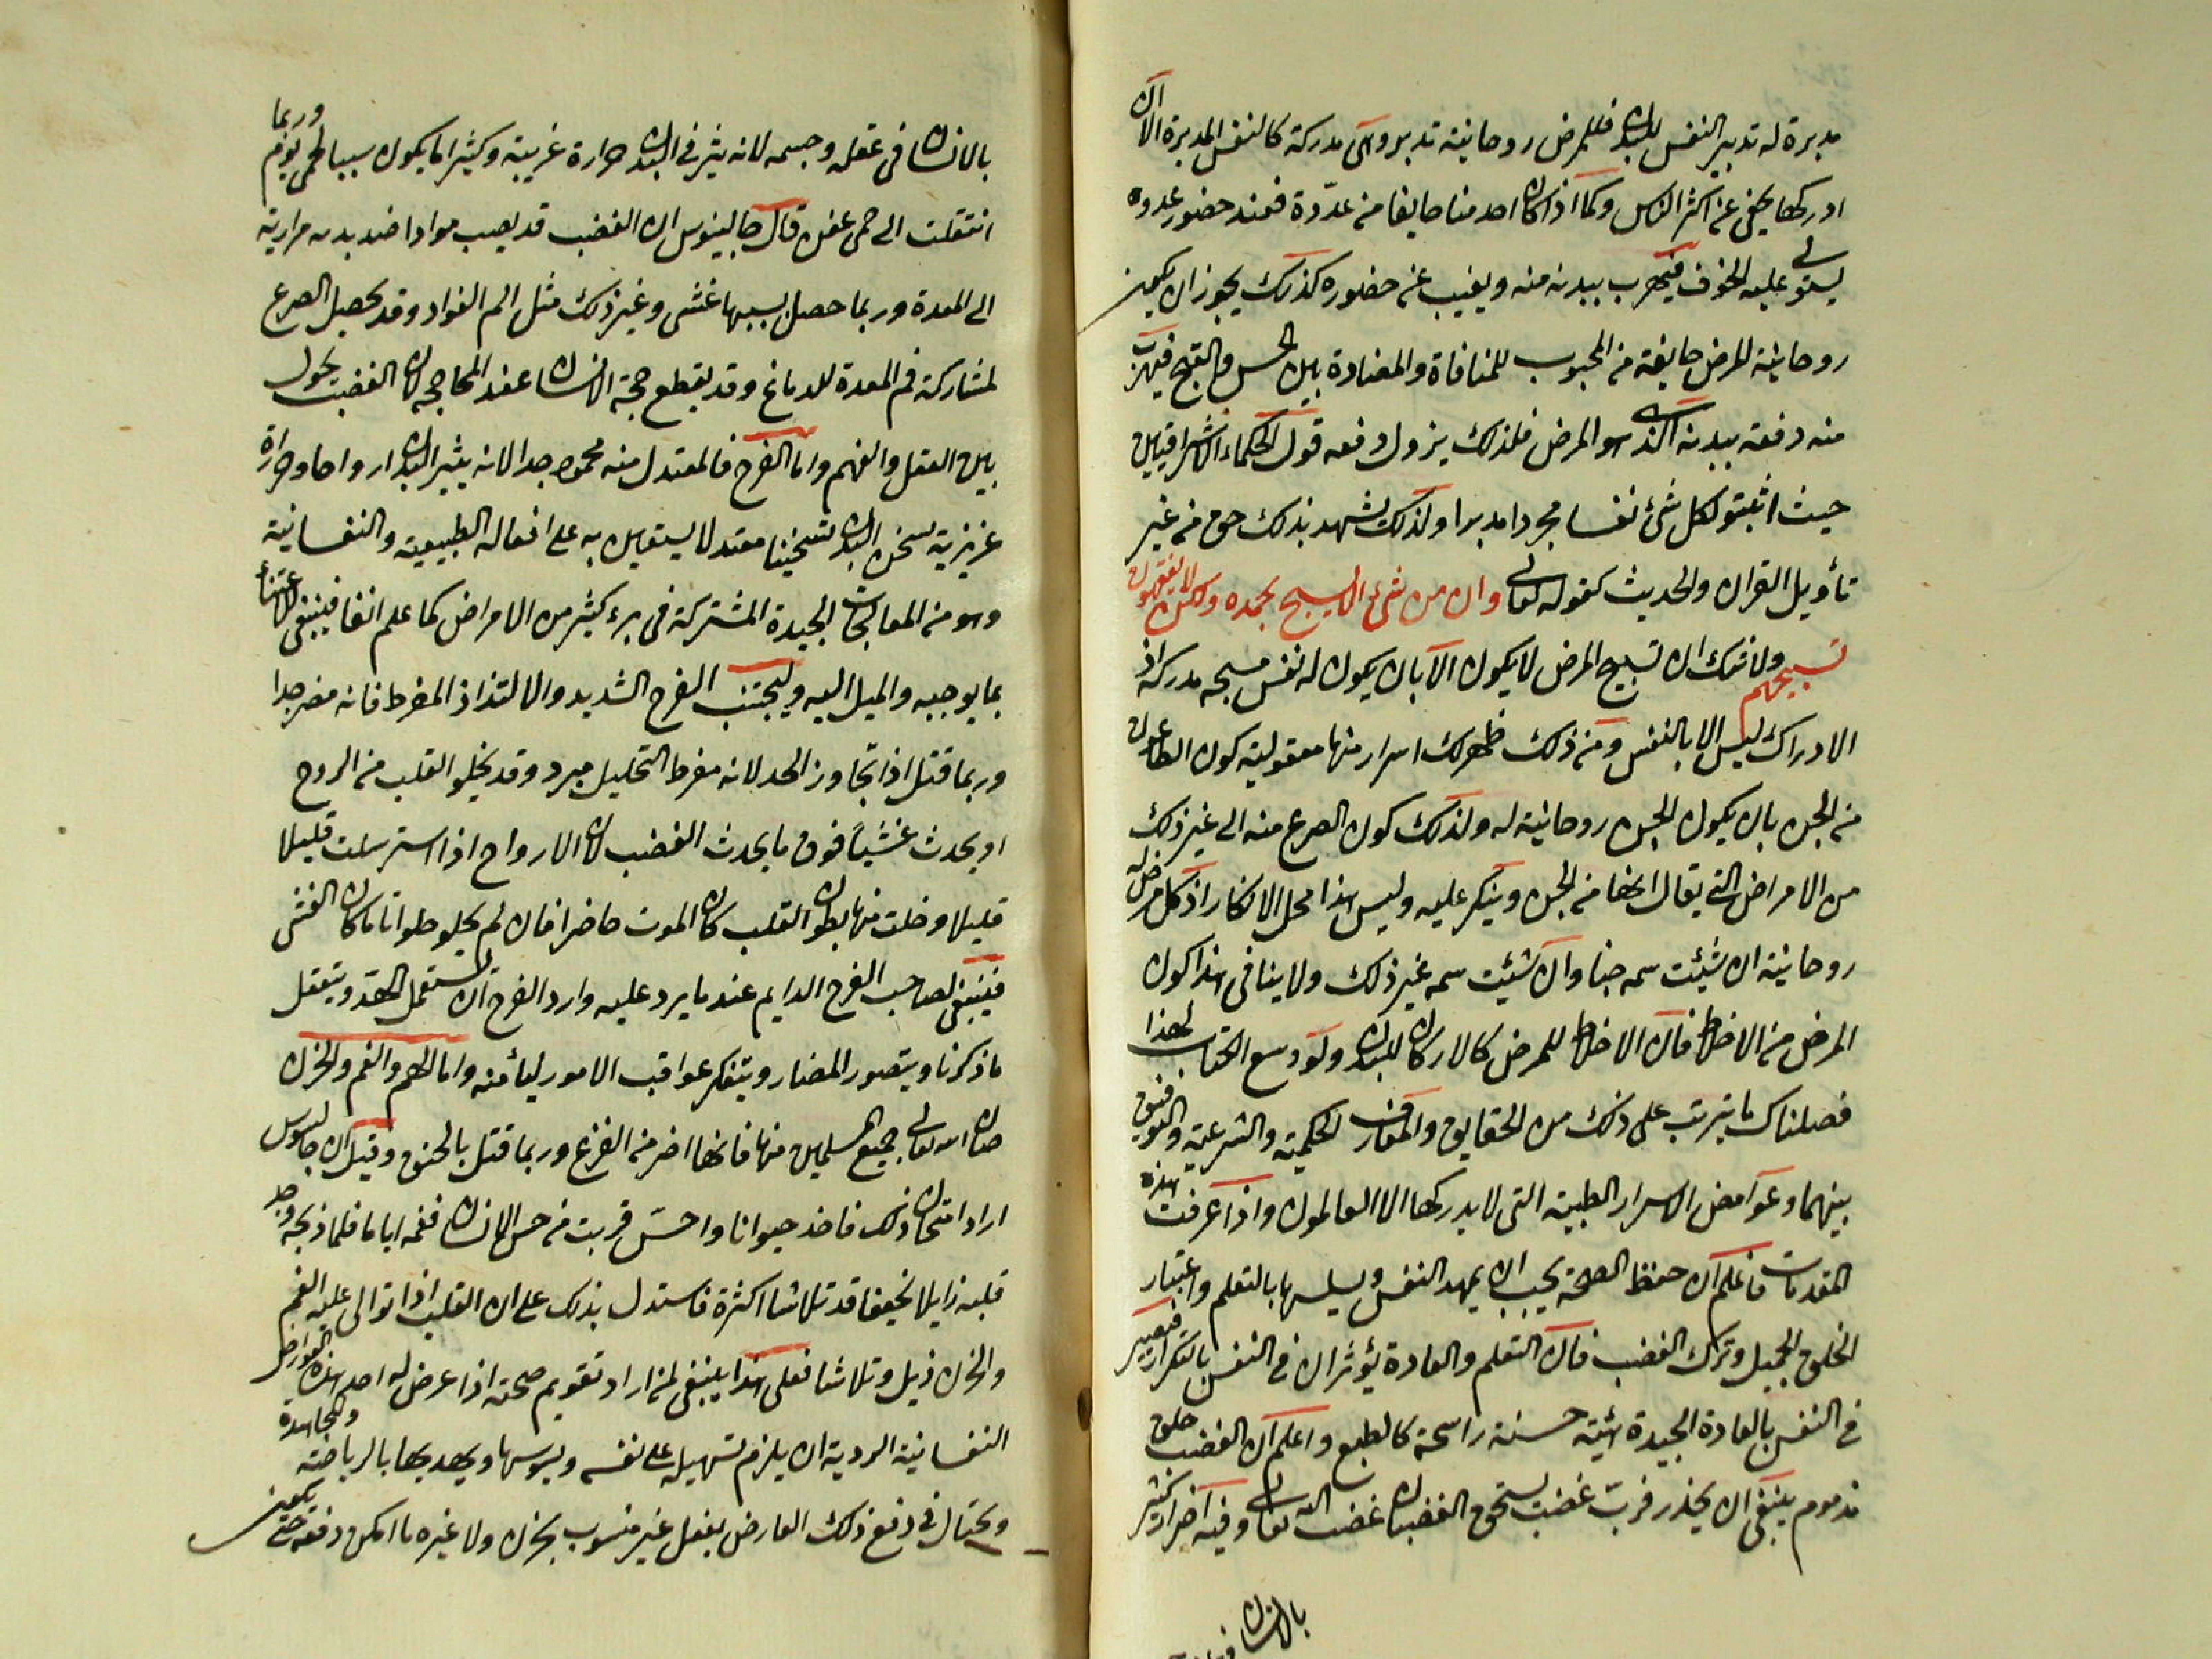 مدبرة له تدبير النفس للبدن فللمرض روحانية تدبره وهى مدركة كالنفس المدبرة الا ان
ادركها يخفى عن اكثر الناس وكما اذا كان احد منا خايفا من عدّوه فعند حضور عدوه
يستولى عليه الخوف فيهرب ببدنه منه ويغيب عن حضوره كذلك يجوز ان يكون
روحانية المرض خايفة من المحبوب للمنافاة والمضادة بين الحسن والقبح فيهرب
منه دفعة ببدنه الذى هو المرض فلذلك يزول دفعه قول الحكماء الاشراقيين
حيث اثبتوا لكل شئ نفسا مجردا مدبرا ولذلك يشهد بذلك حق من غير
تأويل القران والحديث كقوله تعالى وان من شئ الا يسبح بحمده ولكن لا تفقهون
تسبيحهم ولا شك ان تسبيح المرض لا يكون الا بان يكون له نفس مسبحه مدركه اذ
الادراك ليس الا بالنفس ومن ذلك ظهر لك اسرار منها معقولية كون الطاعون
من الجن بان يكون الجن روحانية له ولذلك كون الصرع منه الى غير ذلك
من الامراض التى يقال انها من الجن وينكر عليه وليس هذا محل الانكار اذ كل مرض له
روحانية ان شيئت سمه جنا وان شيئت سمه غير ذلك ولا ينافى هذا كون
المرض من الاخلاط فان الاخلاط للمرض كالاركان للبدن ولو وسع الكتاب لهذا
فصلناك ما يترتب على ذلك من الحقايق والمعارف الحكمية والشرعية والتوفيق
بينهما وغوامض الاسرار الطبية التى لا يدركها الا العالمون واذا عرفت هذه
المقدمات فاعلم ان حفظ الصحة يجب ان يمهد النفس ويسلسها بالتعلم واعتبار
الخلق الجميل وترك الغضب فان التعلم والعادة يؤثران فى النفس بالتكرار فتصير
فى النفس بالعادة الجيدة هيئة حسنة راسخة كالطبع واعلم ان الغضب خلق
مذموم ينبغى ان يحذر فربّ غضب يستحق الغضبان غضب الله تعالى وفيه اضرار كثير
بالانسان
بالانسان فى عقله وجسمه لانه يثير فى البدن حرارة غريبة وكثيرا ما يكون سببا لحمى يوم وربما
انتقلت الى حمى عفن قال جالينوس ان الغضب قد يصب موادا ضد بدنه مرارية
الى المعدة وربما حصل بسببها غشى وغير ذلك مثل الم الفواد وقد يحصل الصرع
لمشاركة فم المعدة للدماغ وقد يقطع حجة الانسان عند المحاججه لان الغضب يحول
بين العقل والفهم واما الفرح فالمعتدل منه محمود جدا لانه يثير البدن ارواحا وحرارة
غريزية تسخن البدن تسخينا معتدلا يستعين به على افعاله الطبيعية والنفسانية
وهو من المعالجات الجيدة المشتركة فى برء كثير من الامراض كما علم انفا فينبغى الاعتناء
بما يوجبه والميل اليه وليجتنب الفرح الشديد والالتذاذ المفرط فانه مضر جدا
وربما قتل اذا تجاوز الحد لانه مفرط التحليل مبرد وقد يخلو القلب من الروح
او يحدث غشيا فوق ما يحدث الغضب لان الارواح اذا استرسلت قليلا
قليلا وخلت منها بطون القلب كان الموت حاضرا فان لم يخلو خلوا تاما كان الغشى
فينبغى لصاحب الفرح الدايم عند ما يرد عليه وارد الفرح ان يستعمل الحقد ويتعقل
ما ذكرنا ويتصور المضار ويتفكر عواقب الامور ليأمنه واما الهم والغم والحزن
صان الله تعالى جميع المسلمين منها فانها اضر من الفزع وربما قتل بالخنق وقيل ان جالينوس
اراد امتحان ذلك فاخذ حيوانا واحسّ قربت من حس الانسان فغمه اياما فلما ذبحه وجد
قلبه زايلا نحيفا قد تلاشا اكثره فاستدل بذلك على ان القلب اذا توالى عليه الغم
والحزن ذبل وتلاشا فعلى هذا ينبغى لمن اراد تقويم صحته اذا عرض له احد هذه العوارض
النفسانية الردية ان يلزم تسهيله على نفسه ويسوسها ويهديها بالرياضة والمجاهدة
ويحتال فى دفع ذلك العارض بفعل غير منسوب بحزن ولا غيره ما امكن دفعه حتى يكون